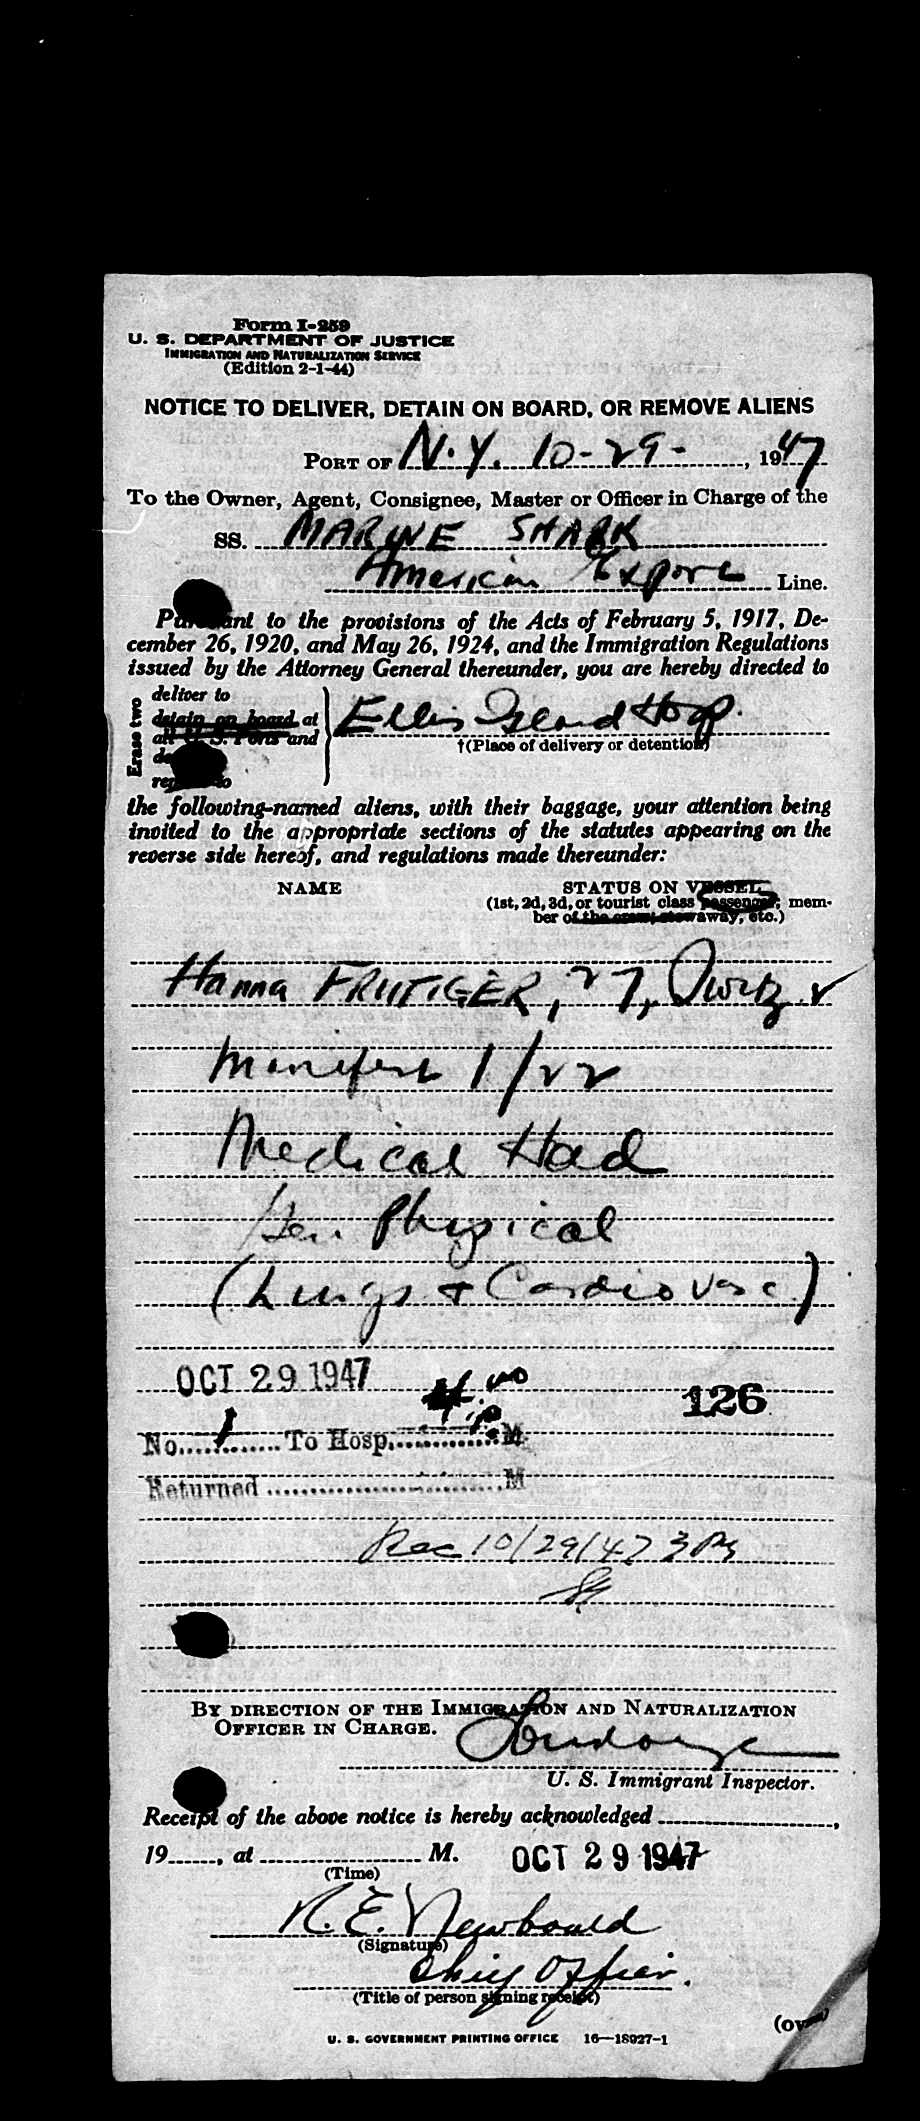 Form I-259
U. S. DEPARTMENT OF JUSTICE
IMMIGRATION AND NATURALIZATION SERVICE
(Edition 2-1-44)
NOTICE TO DELIVER, DETAIN ON BOARD, OR REMOVE ALIENS
PORT OF N.Y. 10-29-, 1947
To the Owner, Agent, Consignee, Master or Officer in Charge of the
SS. MARINE SHARK
American Export Line.
Pursuant to the provisions of the Acts of February 5, 1917, De-
cember 26, 1920, and May 26, 1924, and the Immigration Regulations
issued by the Attorney General thereunder, you are hereby directed to
Erase two
deliver to
detain on board at
all U. S. Ports and
Ellis Island Hosp.
†(Place of delivery or detention)
the following-named aliens, with their baggage, your attention being
invited to the appropriate sections of the statutes appearing on the
reverse side hereof, and regulations made thereunder:
NAME STATUS ON VESSEL
(1st, 2d, 3d, or tourist class passenger; mem-
ber of the crew; stowaway, etc.)
Hanna FRUTIGER, 27,
Manifest 1/22
Medical Hold
Gen. Physical
(Lungs + Cardiovasc.)
OCT 29 1947
126
No. 1 To Hosp. M
Returned M
Rec 10/29/47 3 PM
BY DIRECTION OF THE IMMIGRATION AND NATURALIZATION
OFFICER IN CHARGE.
U. S. Immigrant Inspector.
Receipt of the above notice is hereby acknowledged ,
19 , at M. OCT 29 1947
(Time)
R. E. Newbould
(Signature)
Chief Officer.
(Title of person signing receipt)
(over)
U. S. GOVERNMENT PRINTING OFFICE 16—18927-1